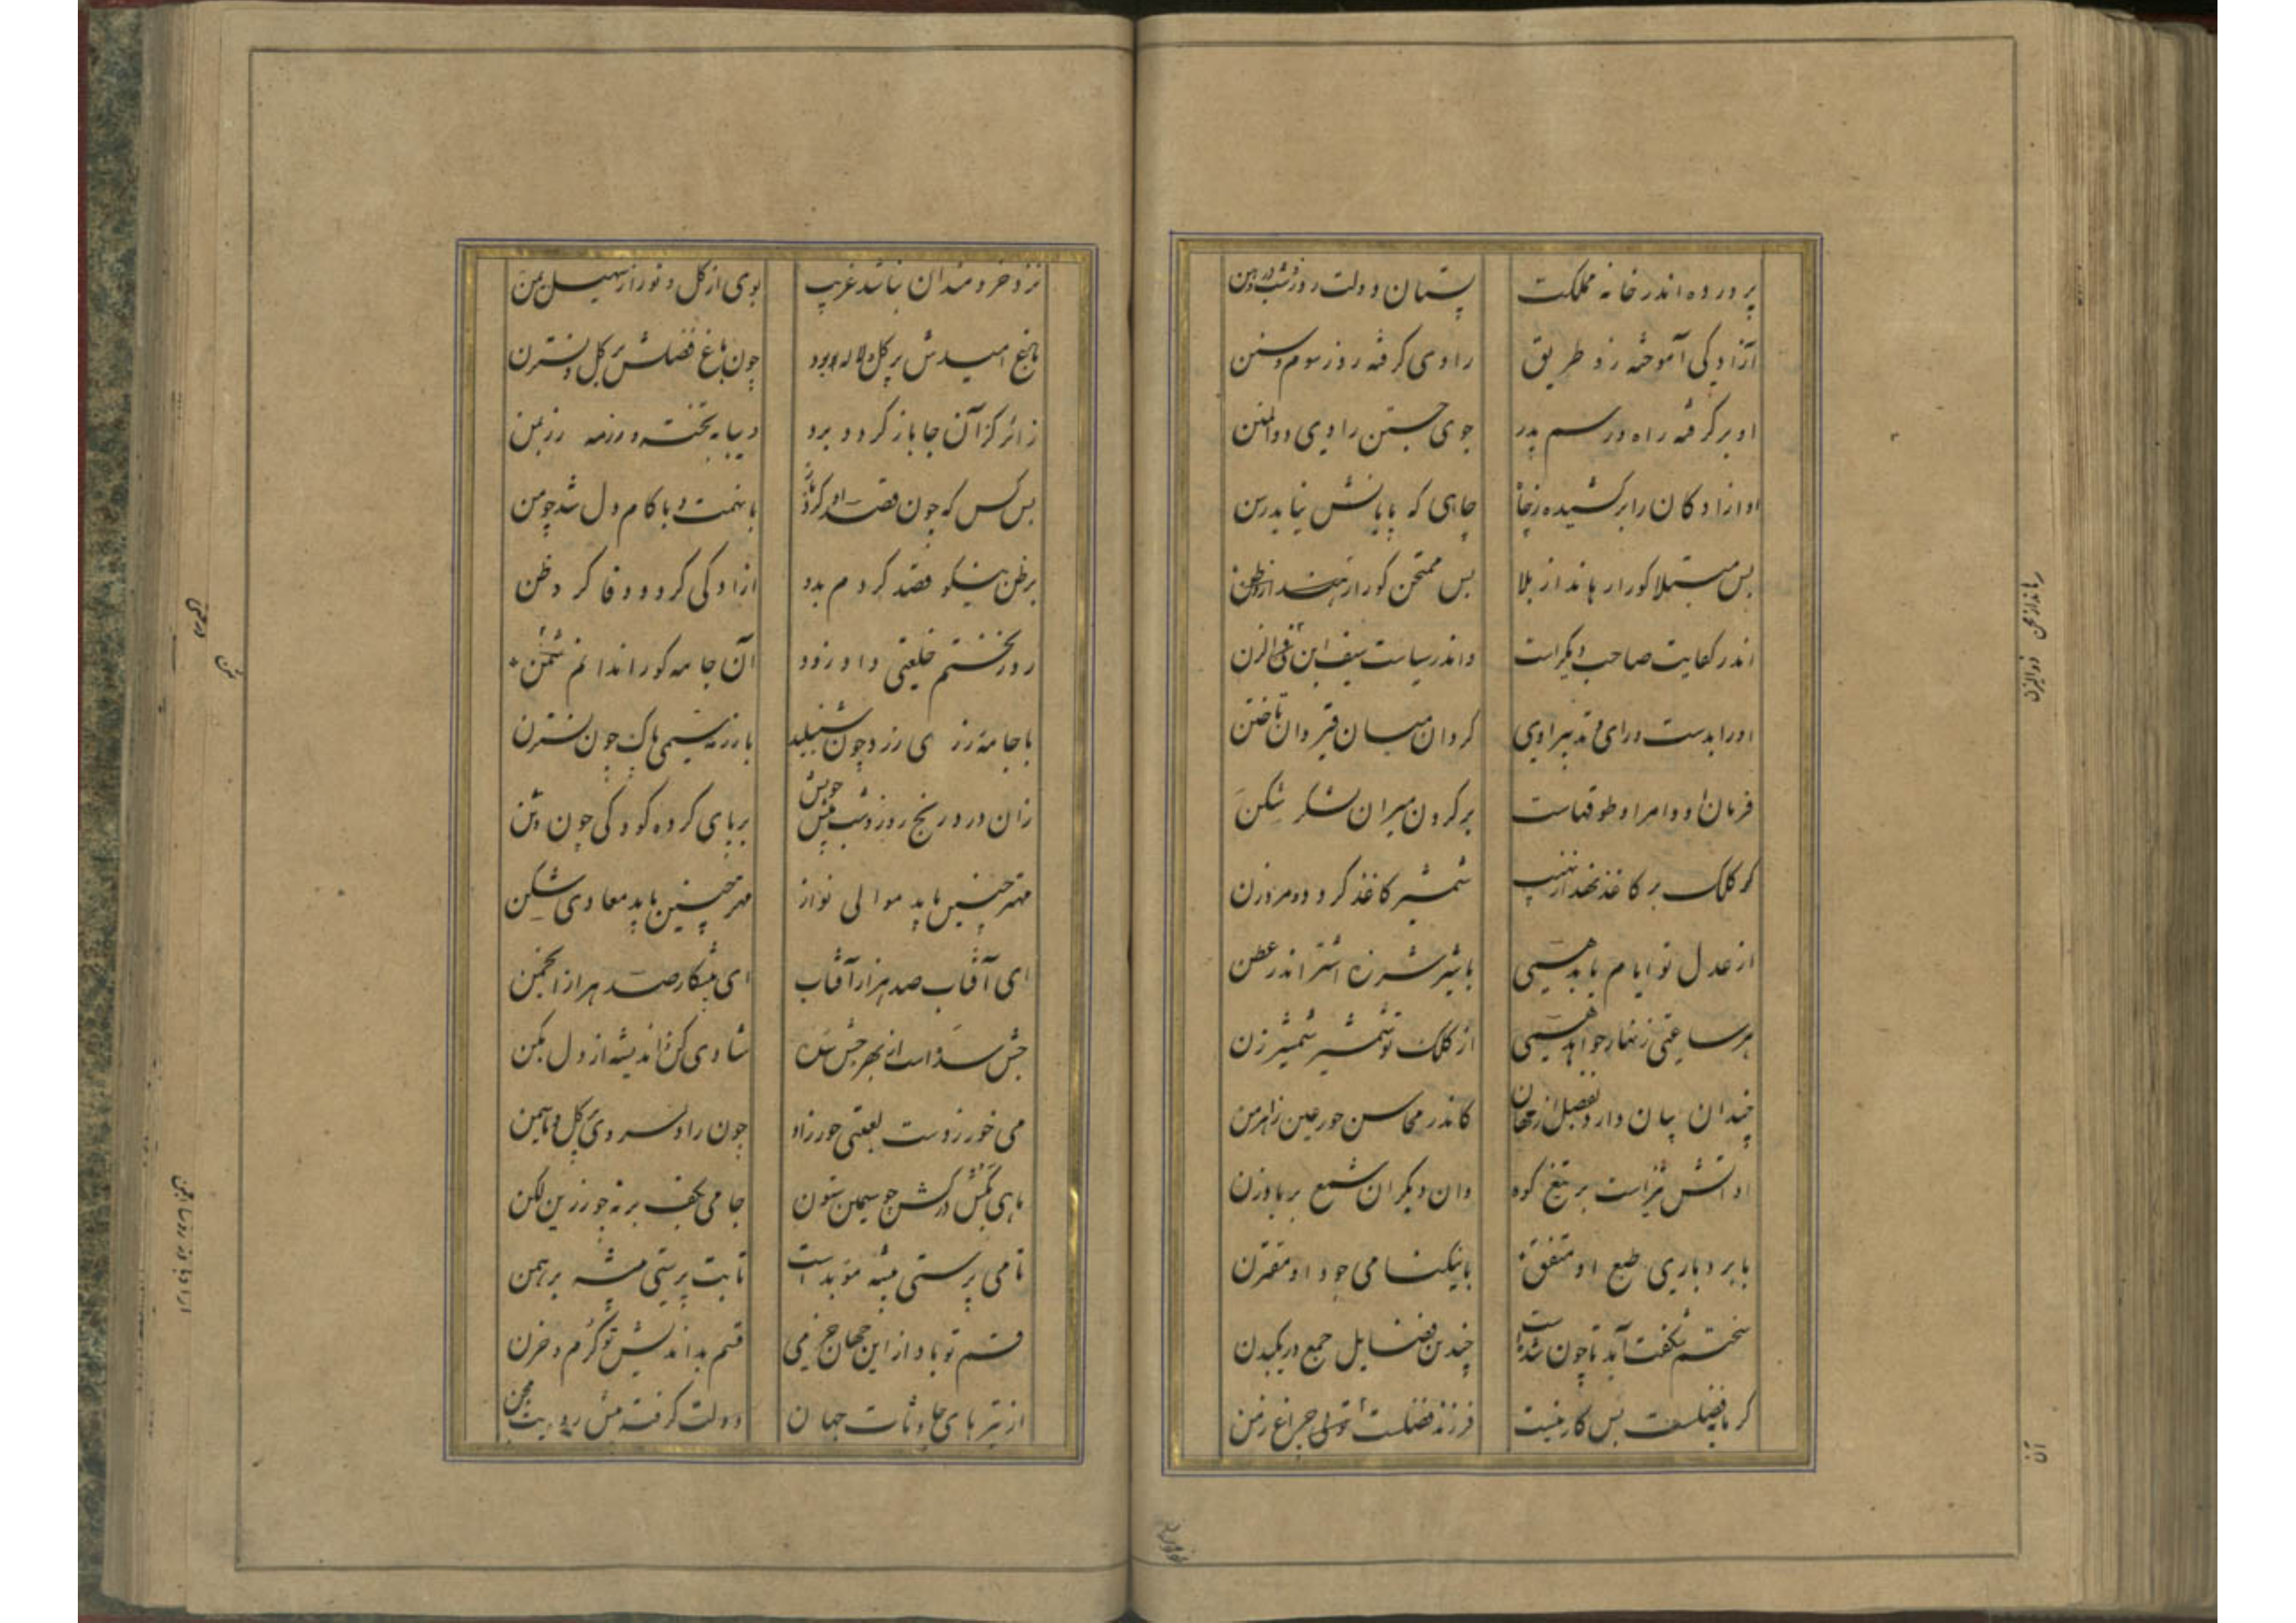 پرورده اندر خانه مملکت پستان دولت روز و شب در دهن
آزادگی آموخته زو طریق رادی گرفته زو رسوم و سنن
او برگرفته راه و رسم پدر چون جستن رادی و دوالمنن
او ازادکان را برکشیده ز چاه چاهی که پایانش نیابد رسن
بس مبتلا کو را رهاند از بلا بس ممتحن کو را رهاند از
اندر کفایت صاحب دیگر است واندر سیاست سیف ابن ذی الزن
او را بدست و رای و تدبیر اوی کردان میان قیروان تا ختن
فرمان او و امر او طوقهاست بر کردن میران لشکر شکن
کر کلک بر کاغذ نهد از نهیب شمشیر کاغذ کردد و مرد زن
از عدل تو ایام یابد همی با شیر شرزه اشتر اندر عطن
هر ساعتی زنهار خواهد همی از کلک تو شمشیر شمشیر زن
چندان بیان دارد بفضل از مهان کاندر محاسن حور عین
او آتش تیز است بر تیغ کوه وان دیگران شمع بر بادزن
با بردباری طبع او متفق با نیکنامی جود او مقترن
سخت شگفت آید تا چون شده است چندین فضایل جمع در یک بدن
کر با فضیلت بس کار نیست فرزند فضلست آن چراغ زمن
رهاند از محن ذوالیزن
آن
نزد خردمندان نباشد غریب بوی از کل و نور از سهیل یمن
باغ امیدش پر کل و لاله بود چون باغ فضلش پر کل و نسترن
زائر کز آن جا باز کردد برد دیبا به تخته و رزمه رزمن
بس کس که چون قصد او کرد باز با نهمت و با کام دل شد چو من
بر ظن نیکو قصد کردم بدو ازادگی کرد و وفا کرد ظن
روز نخستم خلعتی داد زود آن جامه کو را ندانم ثمن
با جامه زری زرد چون شنبلید با رزمه سیمی پاک چون نسترن
زان درد و رنج روز و شب پیش خویش بر پای کرده کودکی چون وثن
مهتر چنین باید موالی نواز مهتر چنین باید معادی شکن
ای آفتاب صد هزار آفتاب ای پیشکار صد هزار انجمن
جشن سده است از بهر جشن سده شادی کن و اندیشه از دل بکن
می خور ز دست لعبتی حورزاد چون زاد سروی بر کل و یاسمن
ماهی بکش در کش چو سیمین ستون جامی بکف بر نه چو زرین لکن
تا می پرستی پیشه موبد است تا بت پرستی پیشه برهمن
قسم تو باد از این جهان خرمی قسم بداندیش تو کرم و حزن
از تیرهای حادثات جهان دولت گرفته پیش رویت مجن